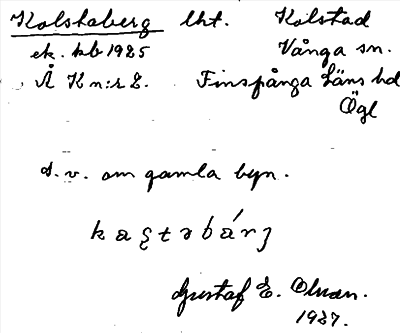 Kolstaberg lht. Kolstad
ek. kb 1925 Vånga sn.
Å K n:r 2. Finspånga Läns hd
Ögl
d.v. om gamla byn.
Gustaf E. Olsson.
1927.